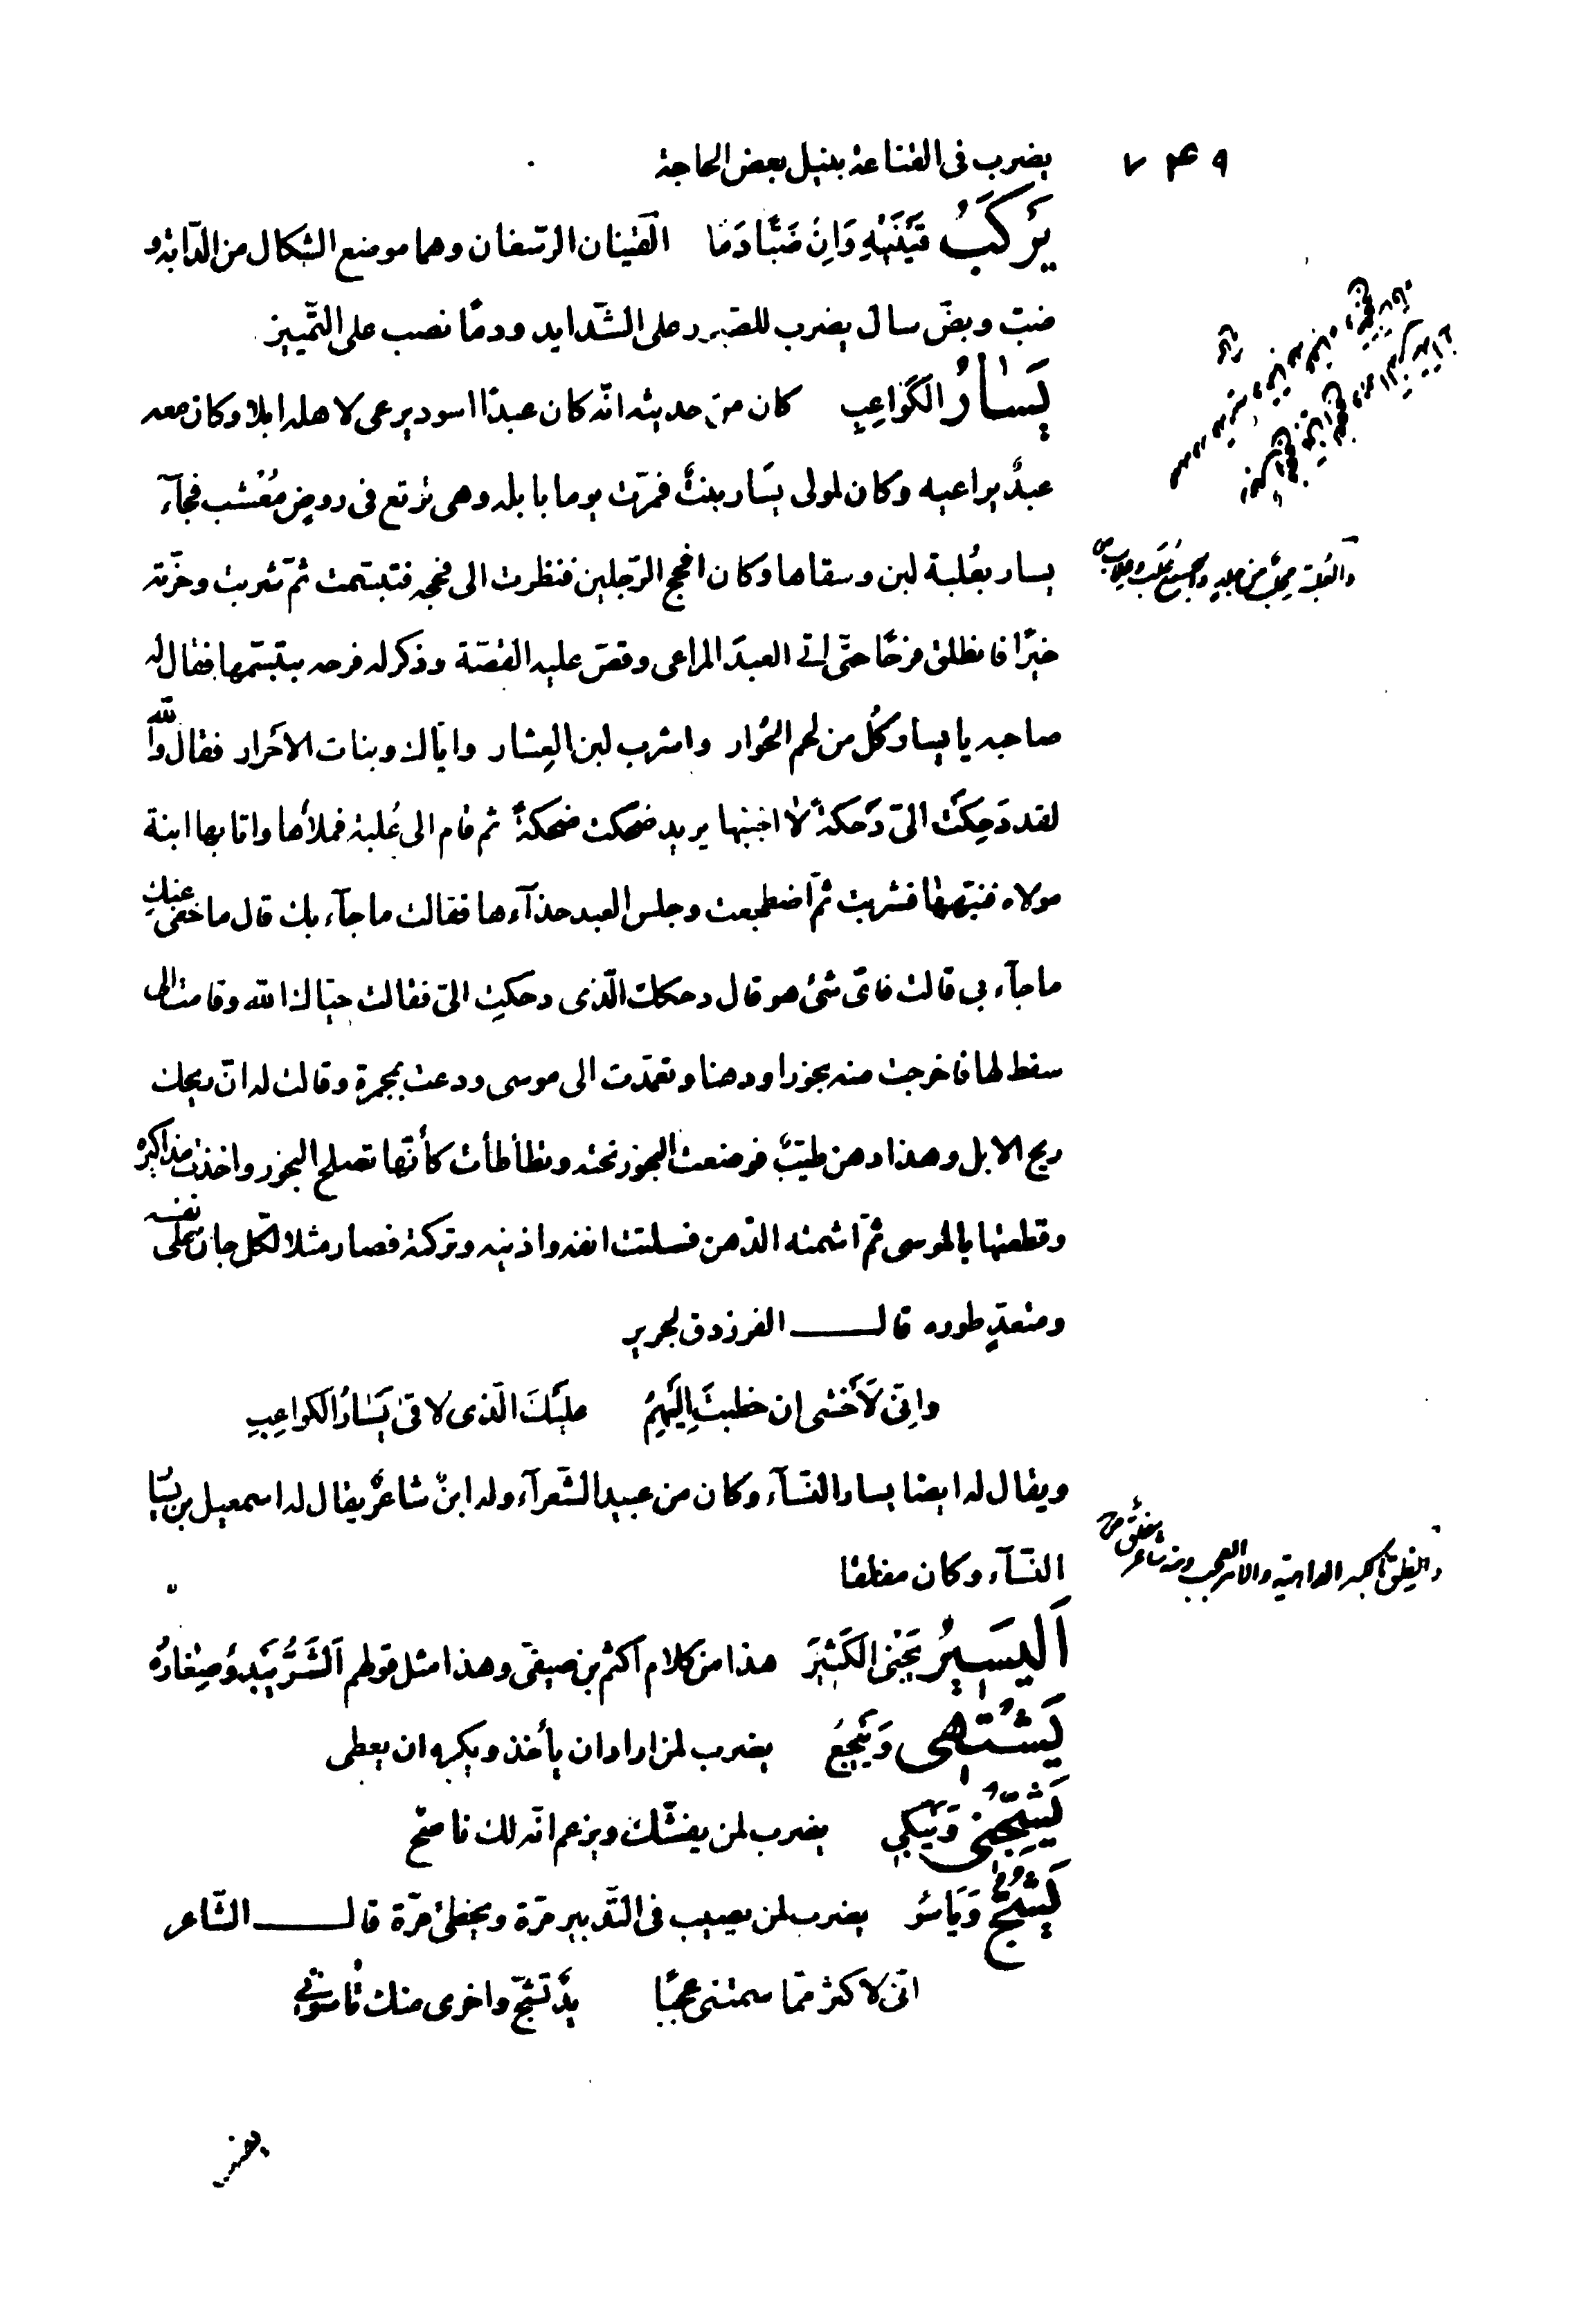 ٧٤٩
يضرب فى القناعة بنيل بعض الحاجة
يَرْكَبُ قَيْنَيْهِ وَاِنْ ضَبَّا دَمًا القينان الرّسغان وهما موضع الشكال من الدّابة و
ضبّ وبضّ سال يضرب للصّبر على الشّدايد ودمًا نصب على التّمييز
يَسَارُ الكَوَاعِبِ كان من حديثه انّه كان عبدًا اسود يرعى لاهله ابلا وكان معه
عبدٌ يراعيه وكان لمولى يسَار بنتٌ فمرّت يوما بابله وهى ترتع فى روضٍ مُعْشب فجآء
يسار بعُلبة لبن وسقاها وكان افحج الرّجلين فنظرت الى فحجه فتبسّمت ثمّ شربت وجزّته
خيرًا فانطلق فرحًا حتّى اتى العبدَ المراعى وقصّ عليه القصّة وذكر له فرحه بتبسّمها فقال له
صاحبه يا يسار كُل من لحم الحُوار واشرب لبن العِشار وايّاك وبنات الاَحرار فقال والله
لقد دَحِكَتْ الىّ دَحكةً لا اخيبها يريد ضحكت ضحكةً ثم قام الى عُلبة فملأها واتا بها ابنة
مولاه فنبّهها فشربت ثمّ اضطجعت وجلس العبد حذآءها فقالت ما جآء بك قال ما خفى عنكِ
ما جآء بى قالت فاىّ شئ هو قال دحكك الّذى دحكتِ الىّ فقالت حيّاك الله وقامت الى
سفط لها فاخرجت منه بخورا ودهنا وتعمّدت الى موسى ودعت بمجمرة وقالت له انّ ريحك
ريح الابل وهذا دهن طيّبٌ فوضعت البخور تحته وتطأطأت كأنّها تصلح البخور واخذت مذاكيره
وقطعتها بالموسى ثمّ اشمّته الدّهن فسلتت انفه واذنيه وتركته فصار مثلا لكلّ جان على نفسه
ومتعدٍّ طوره قال الفرزدق لجرير
وانّى لَاَخشى ان خطبتَ اِلَيهِمُ عليكَ الّذى لاقى يَسَارُ الكواعِبِ
ويقال له ايضا يسار النّسآء وكان من عبيد الشّعرآء وله ابنٌ شاعرٌ يقال له اسمعيل بن يسار
النّسآء وكان مفلقا
اَليَسِيرُ يَجْنِى الكَثيرَ هذا من كلام اكثم بن صيفى وهذا مثل قولهم اَلشَّرُّ يَبْدَؤُ صِغارُهُ
يَشْتَهِى وَيَجِعُ يضرب لمن اراد ان يأخذ ويكره ان يعطى
يَشُجُّنِى وَيَبْكِى يضرب لمن يغشّك ويزعم انّه لك ناصح
يَشُجُّ وَيَاسُو يضرب لمن يصيب فى التّدبير مرّة ويخطئ مرّة قال الشّاعر
انّى لاكثر ممّا سمتنى عجبًا يدٌ تشجّ واخرى منك تأسونى
والعلبة محلب من جلد والجمع علب وعلاب ص
والفلق بالكسر الداهية والامر العجب ومنه شاعر مفلق ص